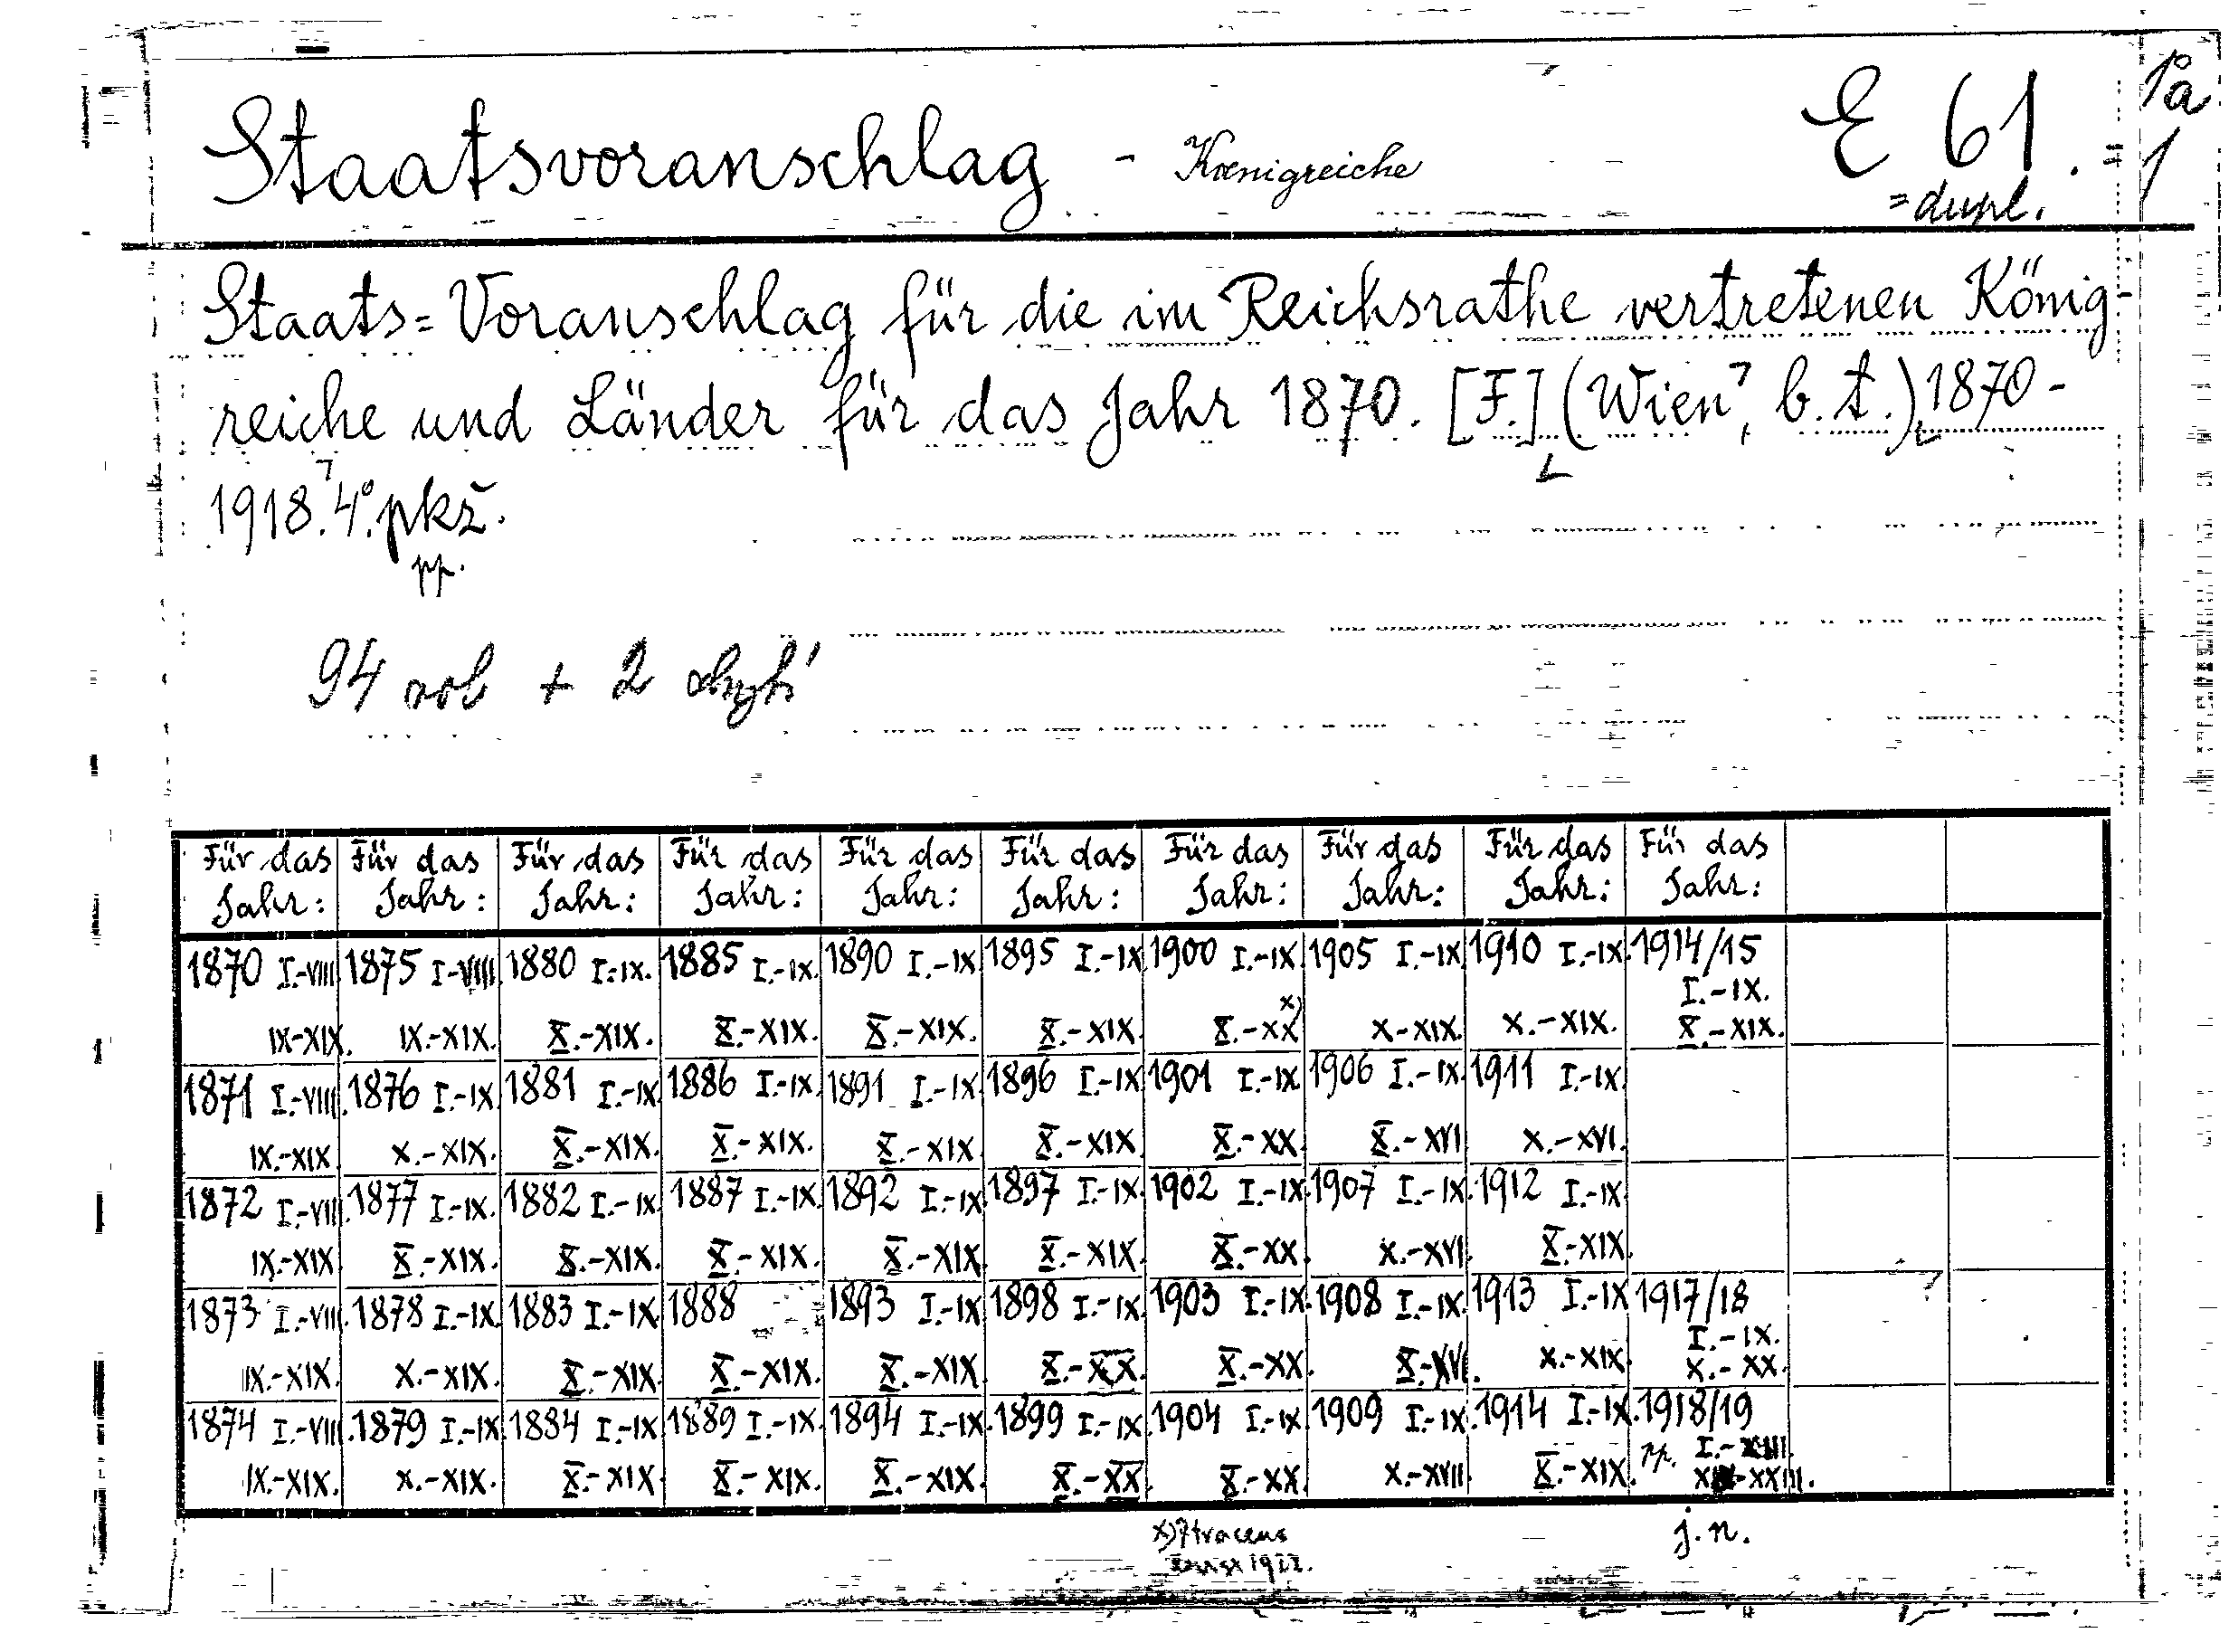 Staatsvoranschlag - Kœnigreiche E 61. = 1
1°a
= dupl.
Staats=Voranschlag für die im Reichsrathe vertretenen König-
reiche und Länder für das Jahr 1870. [F.] (Wien, b.t.) 1870-
1918. 4°. pkž.
pp.
94 vol + 2
Für das Für das Für das Für das Für das Für das Für das Für das Für das Für das
Jahr: Jahr: Jahr: Jahr: Jahr: Jahr: Jahr: Jahr: Jahr: Jahr:
1870 I.-VIII. 1875 I.-VIII. 1880 I.-IX. 1885 I.-IX. 1890 I.-IX. 1895 I.-IX. 1900 I.-IX. 1905 I.-IX. 1910 I.-IX. 1914/15
I.-IX.
IX-XIX. IX.-XIX. X.-XIX. X.-XIX. X.-XIX. X.-XIX. X.-XX x) X-XIX. X.-XIX. X.-XIX.
1871 I.-VIII. 1876 I.-IX. 1881 I.-IX. 1886 I.-IX. 1891 I.-IX 1896 I.-IX 1901 I.-IX. 1906 I.-IX. 1911 I.-IX.
IX.-XIX. X.-XIX. X.-XIX. X.-XIX. X.-XIX X.-XIX X.-XX. X.-XVI X.-XVI.
1872 I.-VIII. 1877 I.-IX. 1882 I.-IX 1887 I.-IX. 1892 I.-IX 1897 I.-IX. 1902 I.-IX. 1907 I.-IX. 1912 I.-IX.
IX.-XIX X.-XIX. X.-XIX. X.-XIX. X.-XIX X.-XIX. X.-XX. X.-XVI. X.-XIX.
1873 I.-VIII. 1878 I.-IX. 1883 I.-IX. 1888 1893 I.-IX 1898 I.-IX 1903 I.-IX. 1908 I.-IX. 1913 I.-IX 1917/18
I.-IX.
IX.-XIX. X.-XIX. X.-XIX X.-XIX. X.-XIX X.-XX. X.-XX. X.-XVI. X.-XIX. X.-XX.
1874 I.-VIII. 1879 I.-IX. 1884 I.-IX 1889 I.-IX. 1894 I.-IX. 1899 I.-IX. 1904 I.-IX 1909 I.-IX. 1914 I.-IX. 1918/19
pp. I.-XIII.
IX.-XIX. X.-XIX. X.-XIX X.-XIX. X.-XIX. X.-XX. X.-XX. X.-XVII X.-XIX. -XXIII.
x) Ztraceno
1922.
j.n.